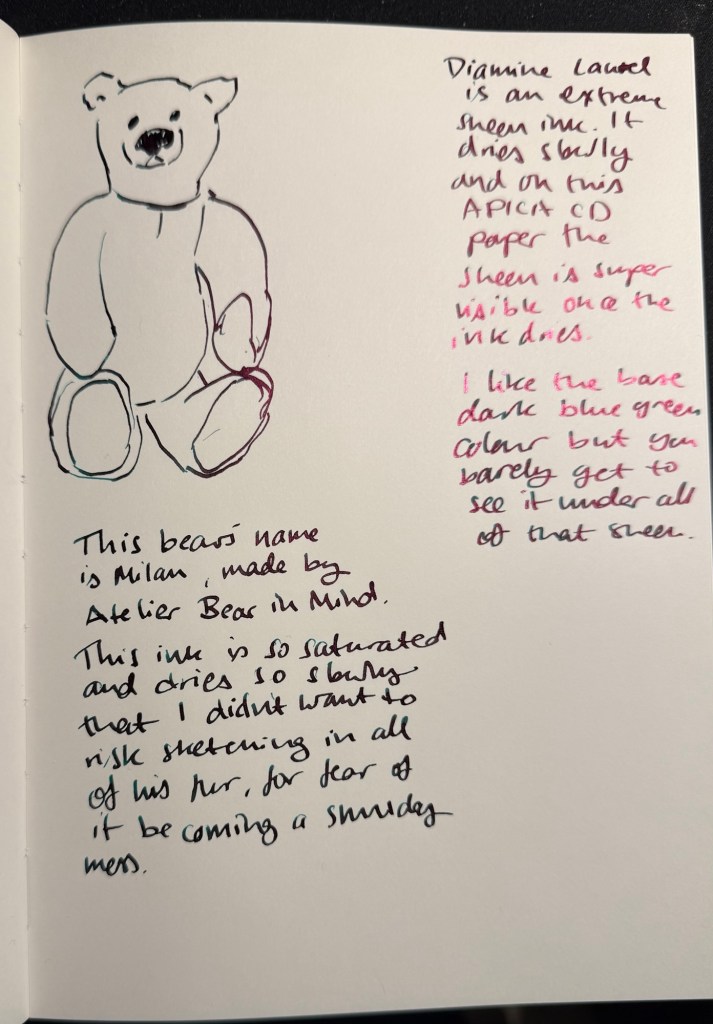 Diamine Laurel
is an extreme
sheen ink. It
dries slowly
and on this
APICA CD
paper the
sheen is super
visible once the
ink dries.
I like the base
dark blue green
colour but you
barely get to
see it under all
of that sheen.
This bears' name
is Milan, made by
Atelier Bear in Mind.
This ink is so saturated
and dries so slowly
that I didn't want to
risk sketching in all
of his fur, for fear of
it becoming a smudgy
mess.